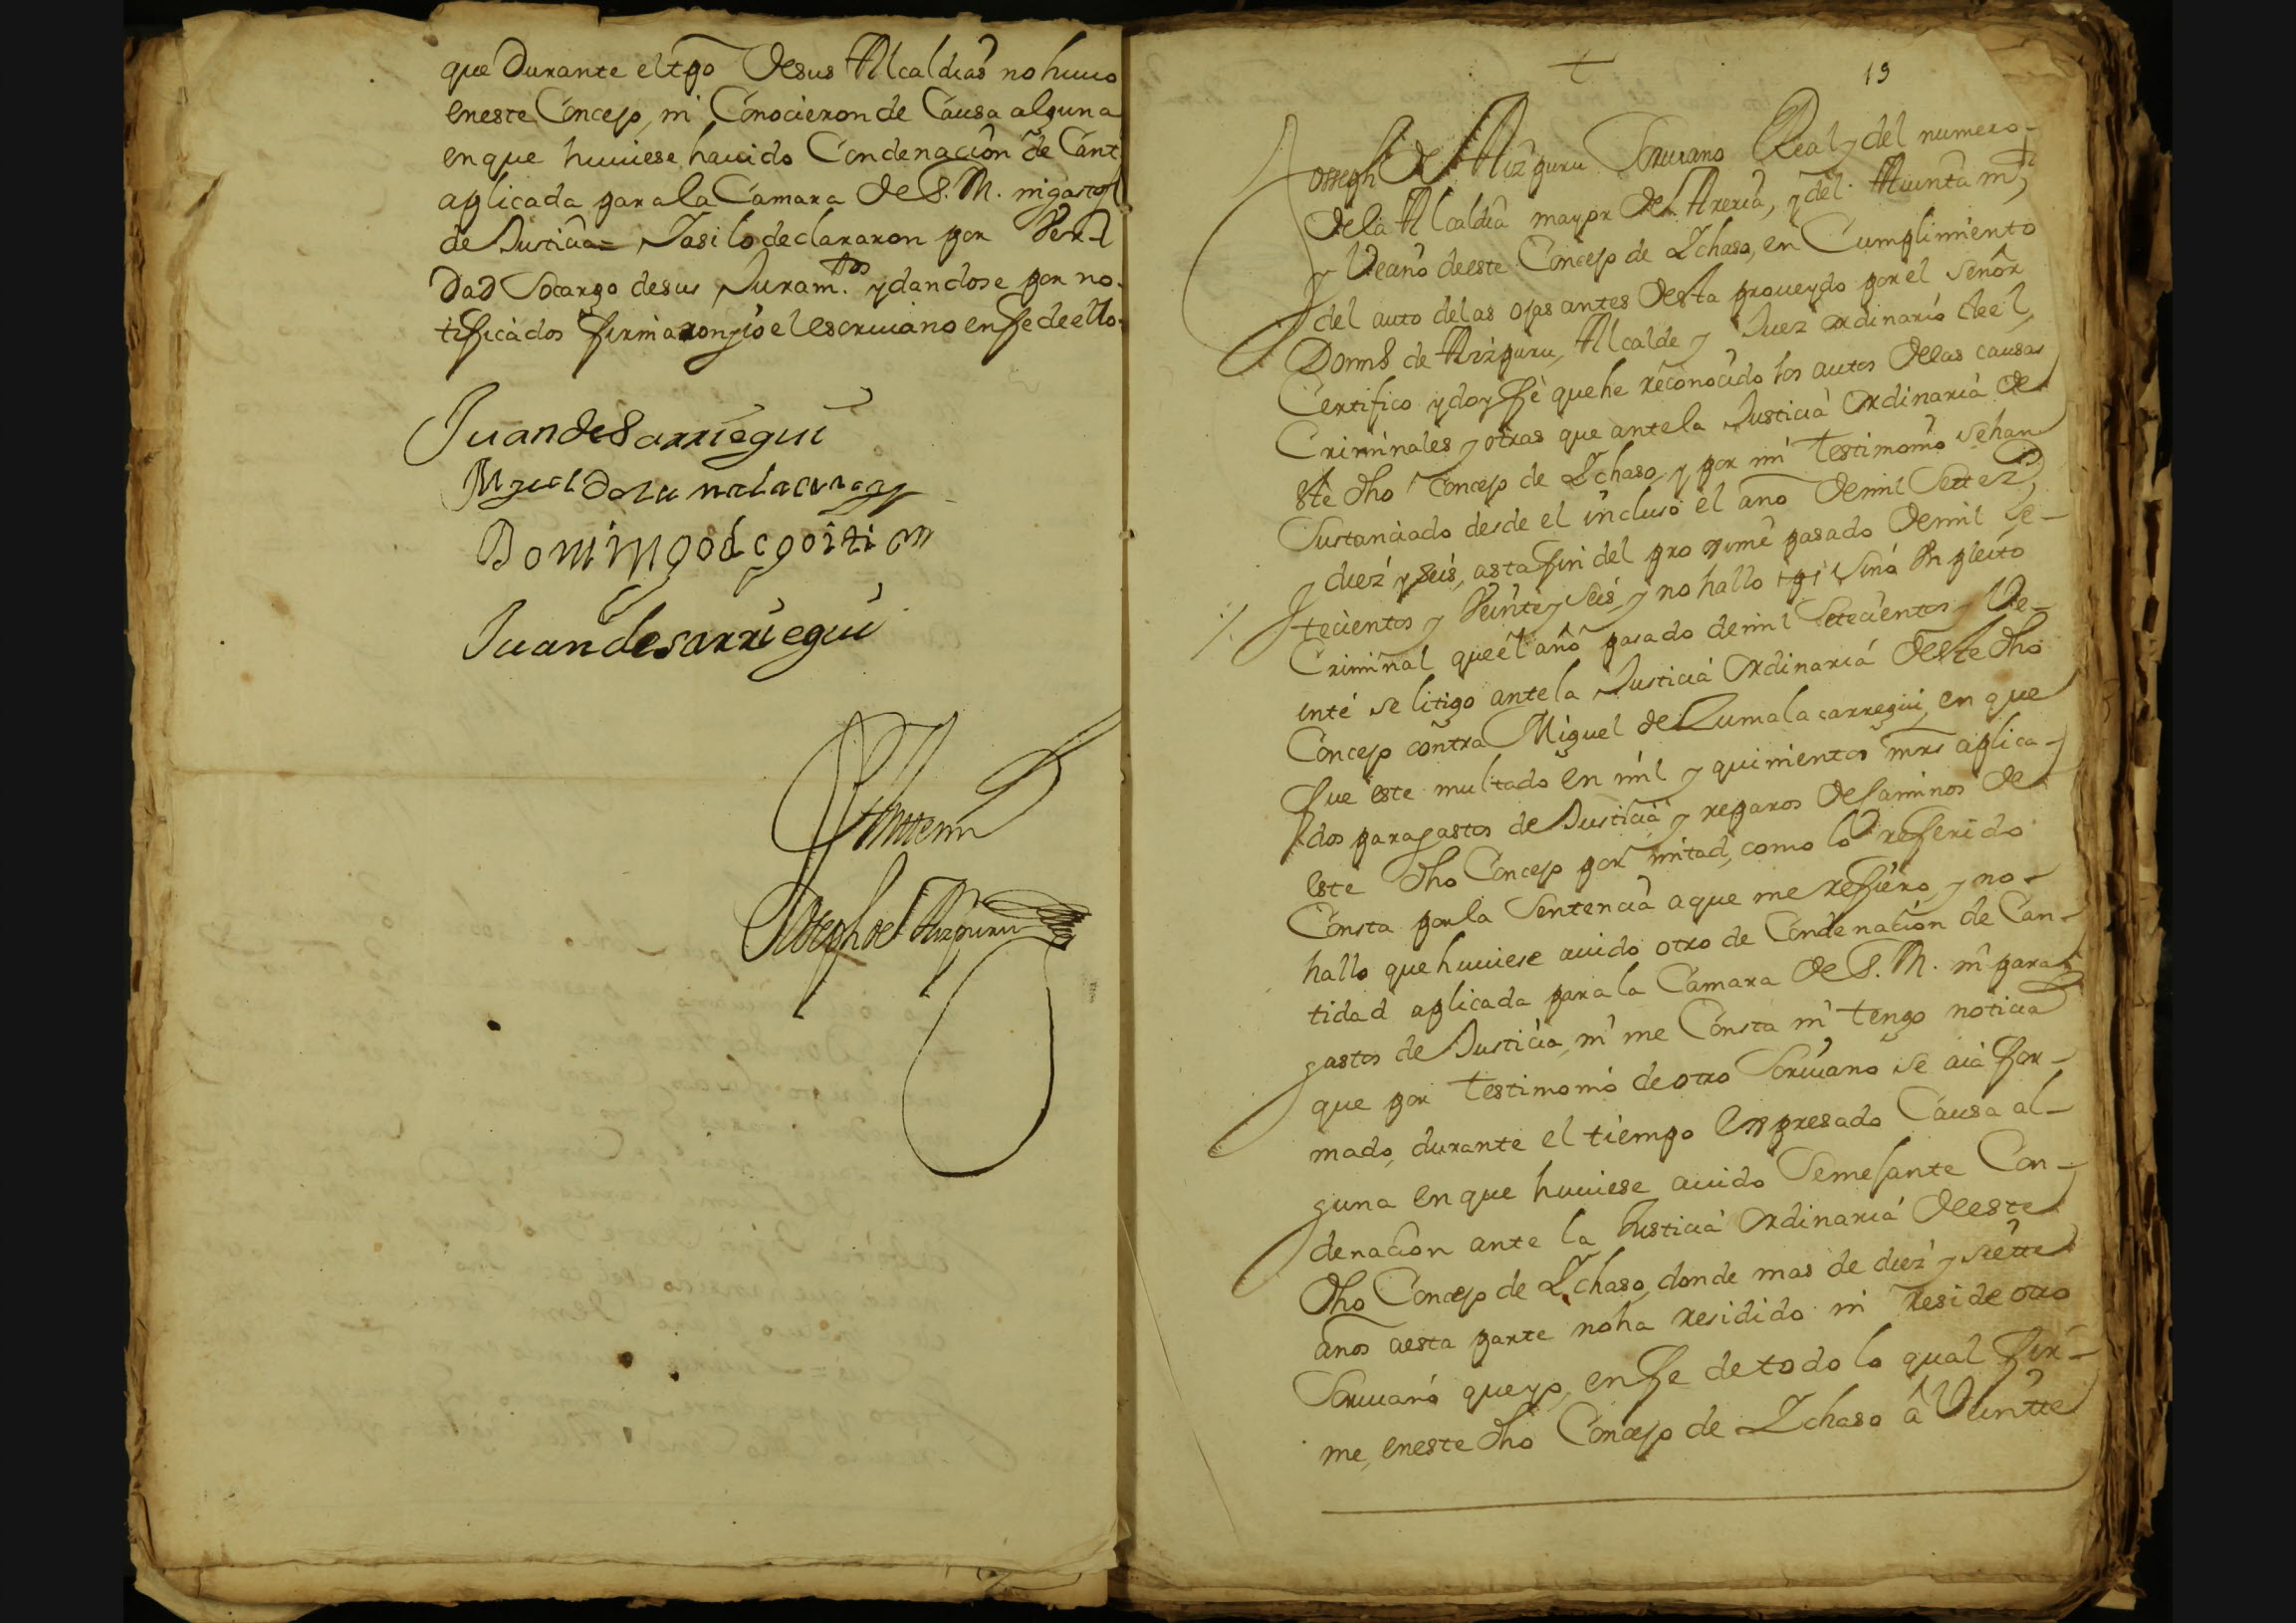 que Durante el tpo de sus Alcaldias no huuo
en este Concejo, ni Conocieron de Causa alguna
en que huuiese hauido Condenacion de Cant
aplicada para la Camara de S. M. ni gastos
de Justicia= Jasi lo declararon por Ver-
dad Socargo de sus Juram.tos y dandose por no-
tificados firmaron y io el escriuano en fe de ello-
Juan de Sarriegui
Miguel de Zumalacarregui
Domingo de goitia
Juan de sarriegui
Ante mi
Joseph de Aizpuru
19
Josseph de Aizpuru Scriuano Real y del numero-
de la Alcaldia mayor de Areria, y del Aiuntam.to
y Veano de este Concejo de Ichaso, en Cumplimiento
del auto de las ojas antes desta proueydo por el Señor
Doms de Aizpuru, Alcalde y Juez ordinario de el,
Certifico y doy fè que he reconocido los autos de las causas
Criminales y otras que ante la Justicia ordinaria de
este dho Concejo de Ichaso, y por mi testimonio se han
Sustanciado desde el inclusò el año de mil Settez.s
y diez y seis, asta fin del proximè pasado de mil se-
tecientos y Veinte y seis, y no hallo sinò un pleito
Criminal que el año pasado de mil Setecientos y Ve-
intè se litigo ante la Justicia ordinaria deste dho
Concejo contra Miguel de Zumalacarregui, en que
fue este multado en mil y quinientos mrs aplica-
dos para gastos de Justicia y reparos de Caminos de
este dho Concejo por mitad, como lo referido
Consta por la Sentencia a que me refiero, y no-
hallo que huuiese auido otro de Condenacion de Can-
tidad aplicada para la Camara de S. M. ni para
gastos de Justicia, ni me Consta ni tengo noticia
que por testimonio de otro Scriuano se aia for-
mado, durante el tiempo Expresado Causa al-
guna en que huuiese auido Semejante Con-
denacion ante la Justicia ordinaria de este
dho Concejo de Ichaso, donde mas de diez y siette
años aesta parte no ha residido ni reside otro
Scriuano que yo, en fe de todo lo qual fir-
me, en este dho Concejo de Ichaso à Veintte